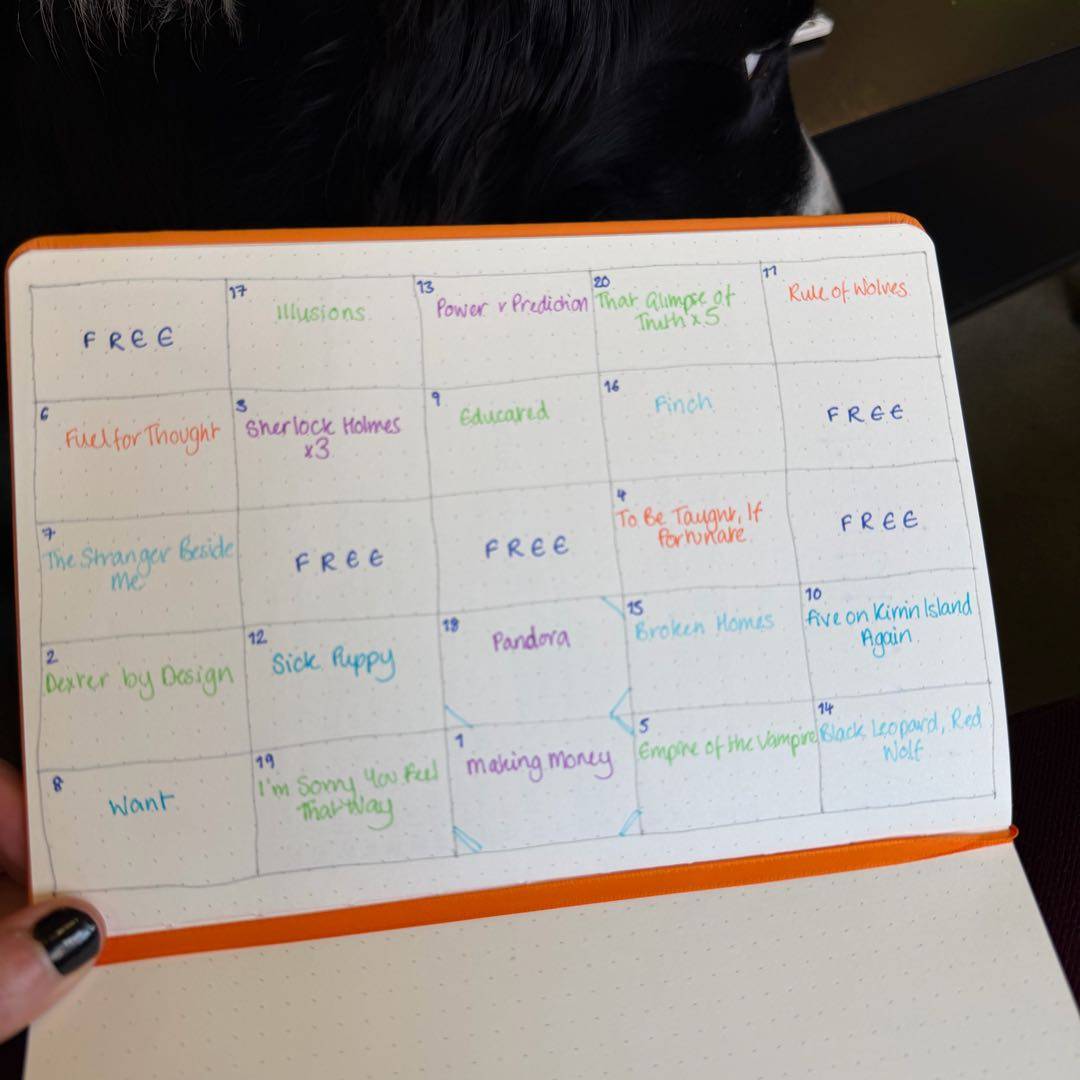 FREE
17
Illusions
13
Power & Prediction
20
That Glimpse of
Truth x5
11
Rule of Wolves
6
Fuel for Thought
3
Sherlock Holmes
x3
9
Educated
16
Finch
FREE
7
The Stranger Beside
Me
FREE
FREE
4
To Be Taught, If
Fortunate
FREE
2
Dexter by Design
12
Sick Puppy
18
Pandora
15
Broken Homes
10
Five on Kirrin Island
Again
8
Want
19
I'm Sorry You Feel
That Way
1
Making Money
5
Empire of the Vampire
14
Black Leopard, Red
Wolf